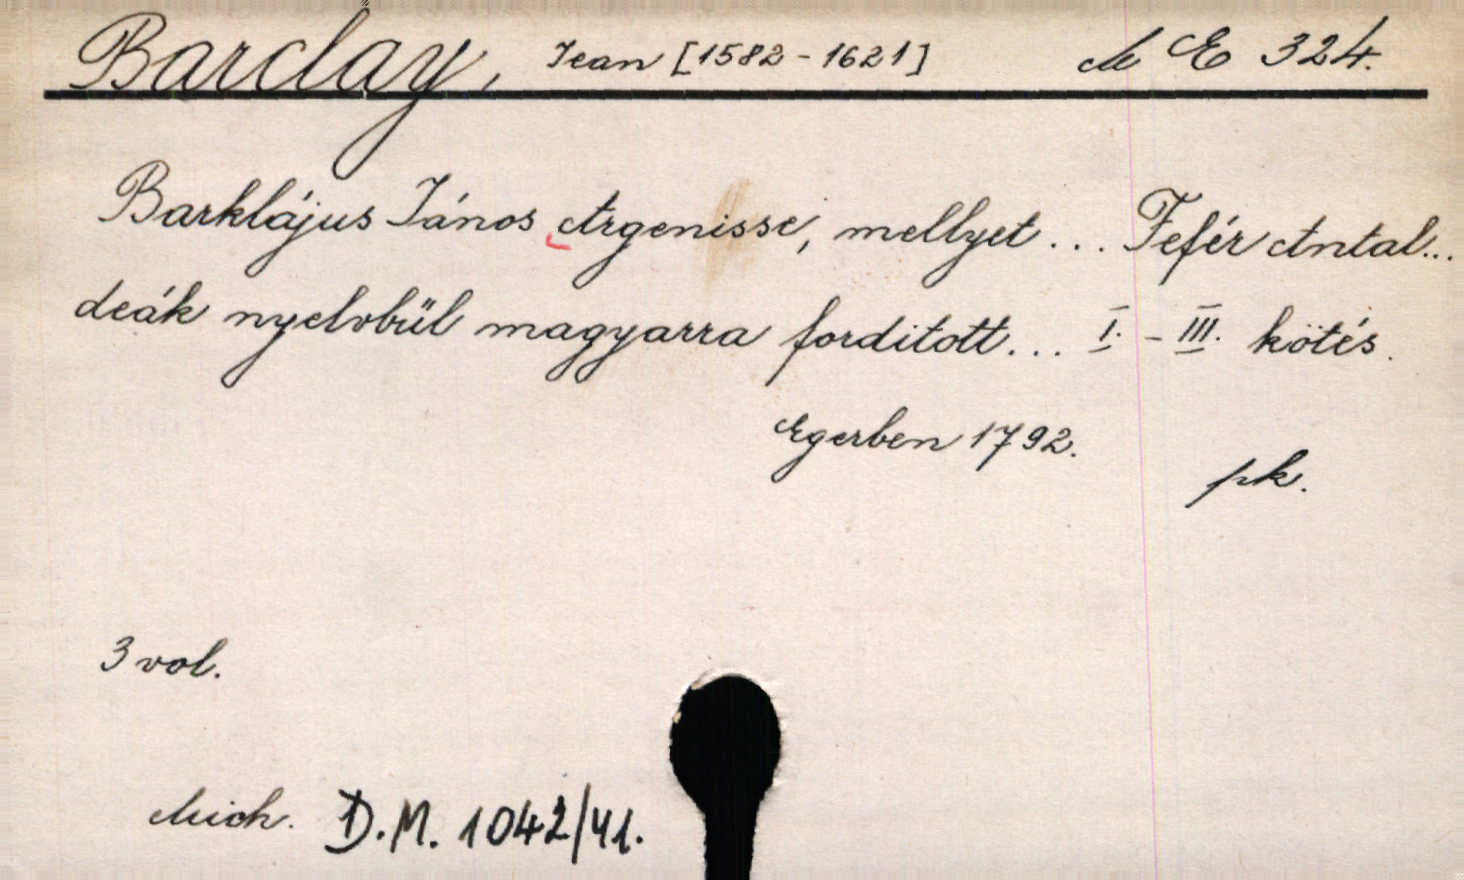 Barclay, Jean [1582-1621] M E 324.
Barklájus János Argenisse, mellyet... Fefér Antal...
deák nyelvbül magyarra forditott... I.-III. kötés.
Egerben 1792.
pk.
3 vol.
Mich. D.M. 1042/41.